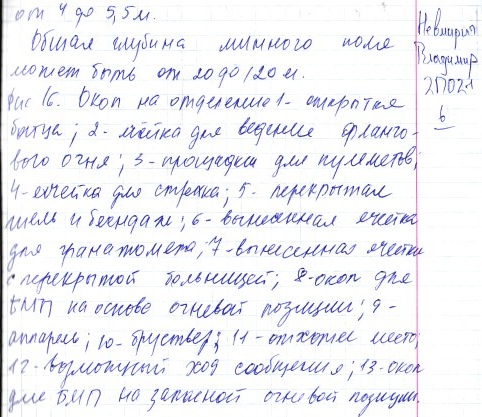 от 4 до 5,5 м.
Общая глубина минного поля
может быть от 20 до 120 м.
Рис 16. Окоп на отделение 1 - открытая
2 - ячейка для ведение фланго-
вого огня; 3 - площадки для пулеметов;
4 - ячейка для стрелка; 5 - перекрытая
щель и блиндаж; 6 - вынесенная ячейка
для гранатомета; 7 - вынесенная ячейка
с перекрытой бойницей; 8 - окоп для
БМП на основе огневой позиции; 9 -
аппарель; 10 - бруствер; 11 - отхожее место;
12 - возможный ход сообщения; 13 - окоп
для БМП на запасной огневой позиции.
Владимир
6